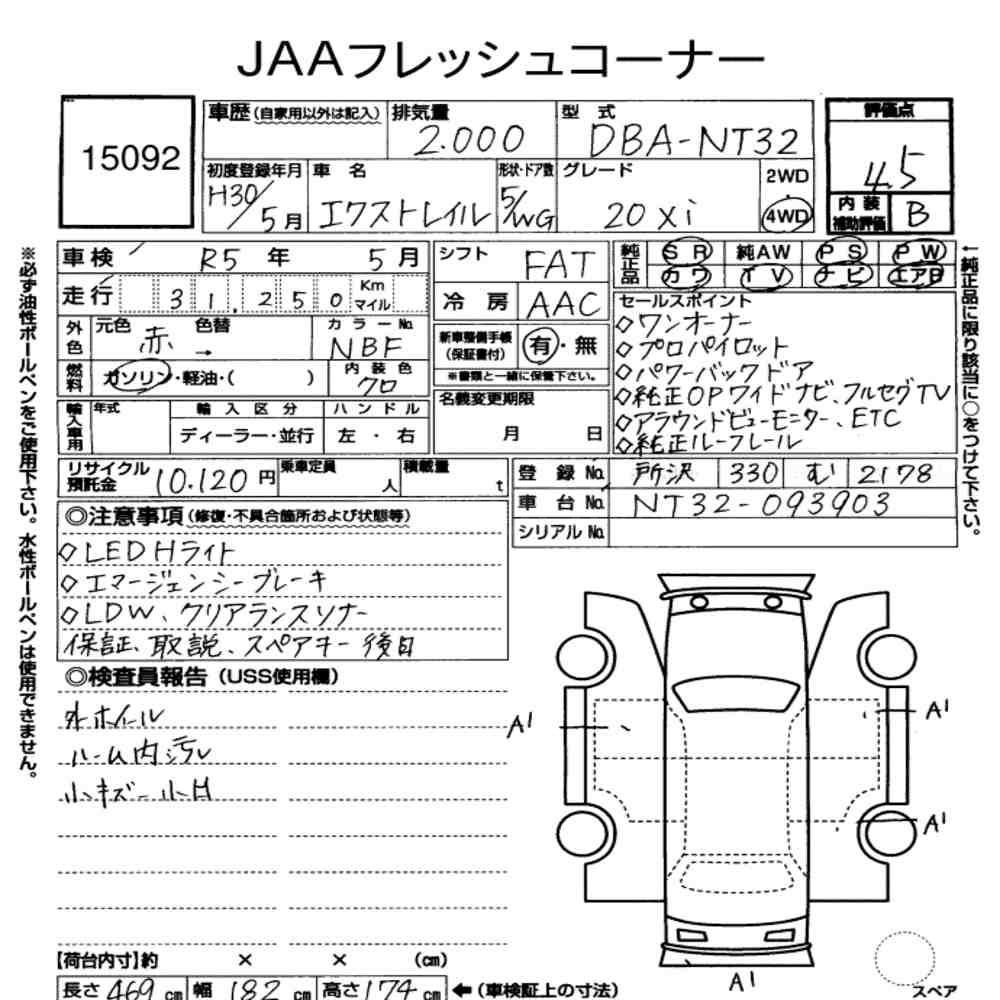 JAAフレッシュコーナー
15092
車歴(自家用以外は記入) 排気量 2.000 型式 DBA-NT32 評価点 4.5
初度登録年月 H30/5月 車名 エクストレイル 形状・ドア数 5/WG グレード 20Xi 2WD・4WD 内装補助評価 B
車検 R5年 5月 シフト FAT 純正品 SR 純AW PS PW
走行 31,250 Km マイル 冷房 AAC カワ TV ナビ エアB
外色 元色 赤 色替 → カラーNo. NBF 新車整備手帳(保証書付) 有・無
燃料 ガソリン・軽油・( ) 内装色 クロ ※書類と一緒に保管下さい。
輸入車用 年式 輸入区分 ディーラー・並行 ハンドル 左・右 名義変更期限 月 日
セールスポイント
◇ワンオーナー
◇プロパイロット
◇パワーバックドア
◇純正OPワイドナビ、フルセグTV
◇アラウンドビューモニター、ETC
◇純正ルーフレール
リサイクル預託金 10.120円 乗車定員 人 積載量 t 登録No. 所沢 330 む 2178
車台No. NT32-093903
シリアルNo.
◎注意事項(修復・不具合箇所および状態等)
◇LED Hライト
◇エマージェンシーブレーキ
◇LDW、クリアランスソナー
保証、取説、スペアキー後日
◎検査員報告(USS使用欄)
外ホイール
ルーム内汚レ
小キズ 小H
A1
A1
A1
A1
スペア
【荷台内寸】約 × × (cm)
長さ 469 cm 幅 182 cm 高さ 174 cm ←(車検証上の寸法)
※必ず油性ボールペンをご使用下さい。水性ボールペンは使用できません。
←純正品に限り該当に○をつけて下さい。